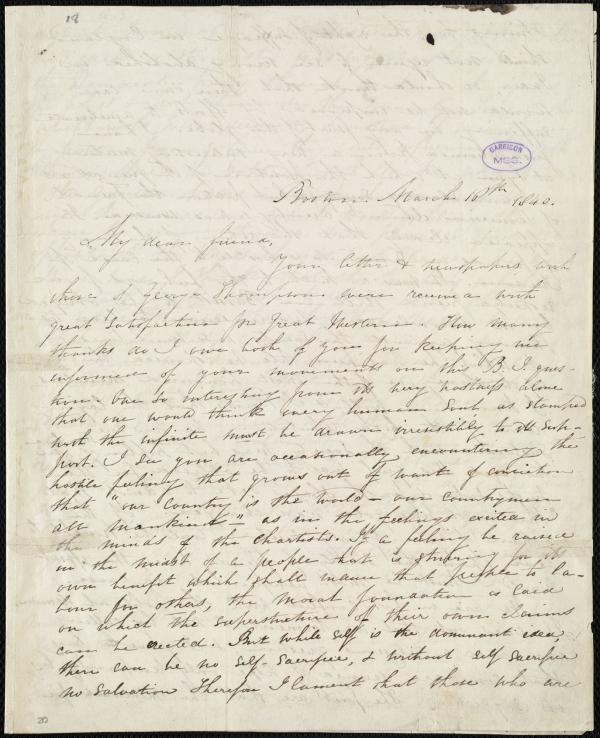 18
GARRISON
MSS.
Boston March 10th 1840.
My dear friend,
Your letter & newspapers with
those of George Thompson were received with
great satisfaction for Great Western. How many
thanks do I owe both of you for keeping me
informed of your movements on this B. I. ques-
tion. One so interesting from its very vastness alone
that one would think every human soul as stamped
with the infinite must be drawn irresistibly to its sup-
port. I see you are occasionally encountering the
hostile feeling that grows out of want of conviction
that "our country is the world – our countrymen
all mankind" – as in the feelings excited in
the minds of the Chartists. If a feeling be raised
in the midst of a people that is striving for its
own benefit which shall induce that people to la-
bour for others, the moral foundation is laid
on which the superstructure of their own claims
can be erected. But while self is the dominant idea
there can be no self-sacrifice, & without self sacrifice
no salvation Therefore I lament that those who are
20